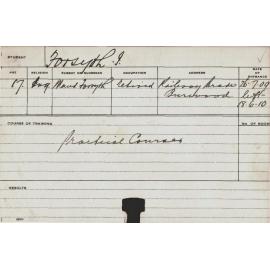 STUDENT Forsyth J.
AGE RELIGION PARENT OR GUARDIAN OCCUPATION ADDRESS DATE OF ENTRANCE
17 Maud Forsyth retired Railway Parade 26-7-09
Burwood left
18-6-10
COURSE OF TRAINING No. OF ROOM
Practical Courses
RESULTS